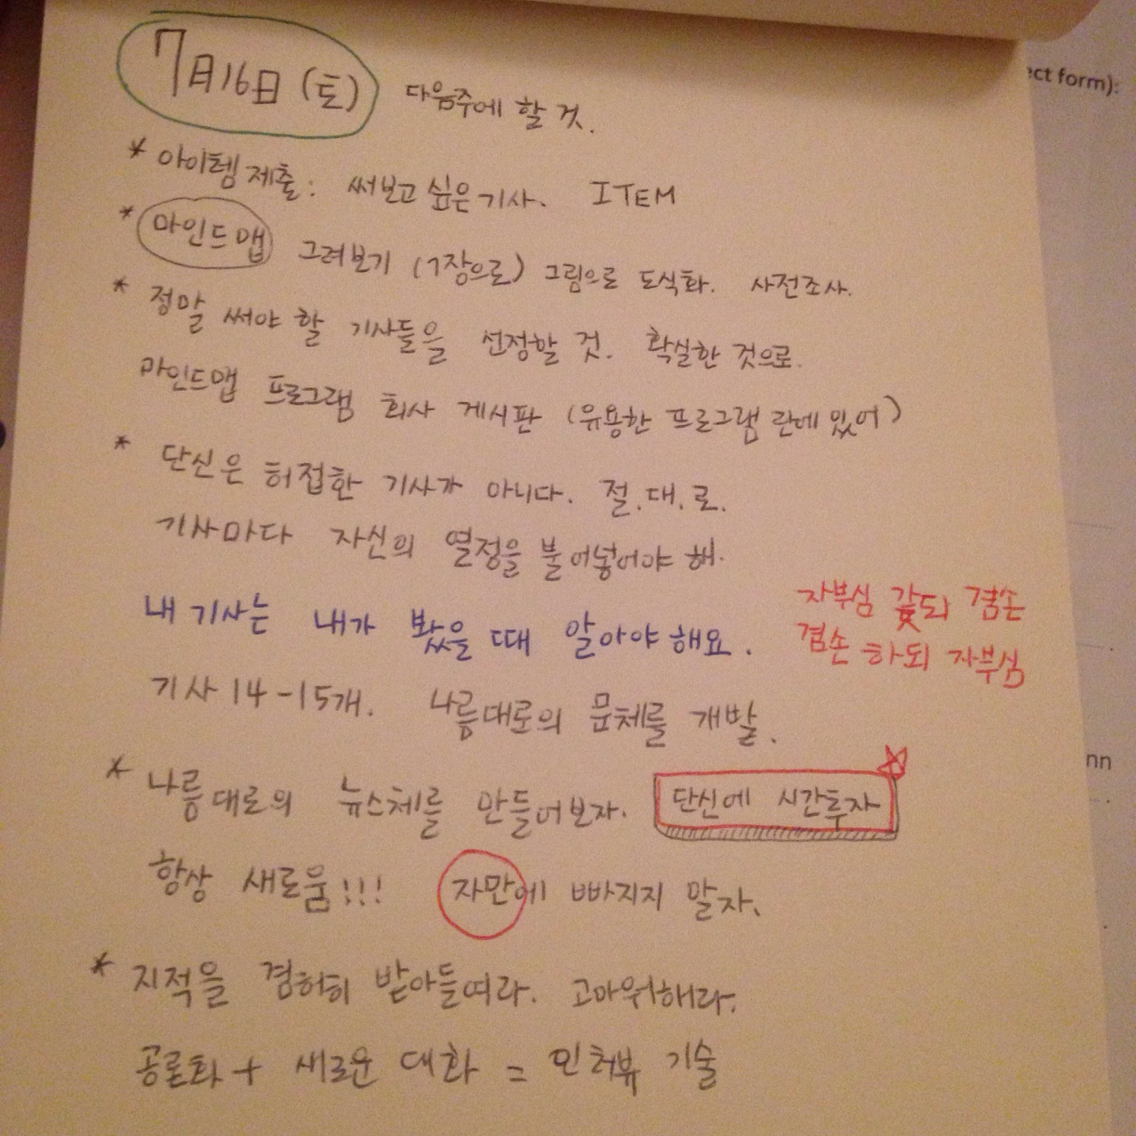 7月16日 (토) 다음주에 할 것.
* 아이템 제출: 써보고 싶은 기사. ITEM
* 마인드맵 그려보기 (1장으로) 그림으로 도식화. 사전조사.
* 정말 써야 할 기사들을 선정할 것. 확실한 것으로.
마인드맵 프로그램 회사 게시판 (유용한 프로그램 란에 있어)
* 단신은 허접한 기사가 아니다. 절.대.로.
기사마다 자신의 열정을 불어넣어야 해.
내 기사는 내가 봤을 때 알아야 해요.
자부심 갖되 겸손
겸손 하되 자부심
기사 14-15개. 나름대로의 문체를 개발.
* 나름대로의 뉴스체를 만들어보자. 단신에 시간투자
항상 새로움!!! 자만에 빠지지 말자.
* 지적을 겸허히 받아들여라. 고마워해라.
공론화 + 새로운 대화 = 인터뷰 기술
ect form):
nn